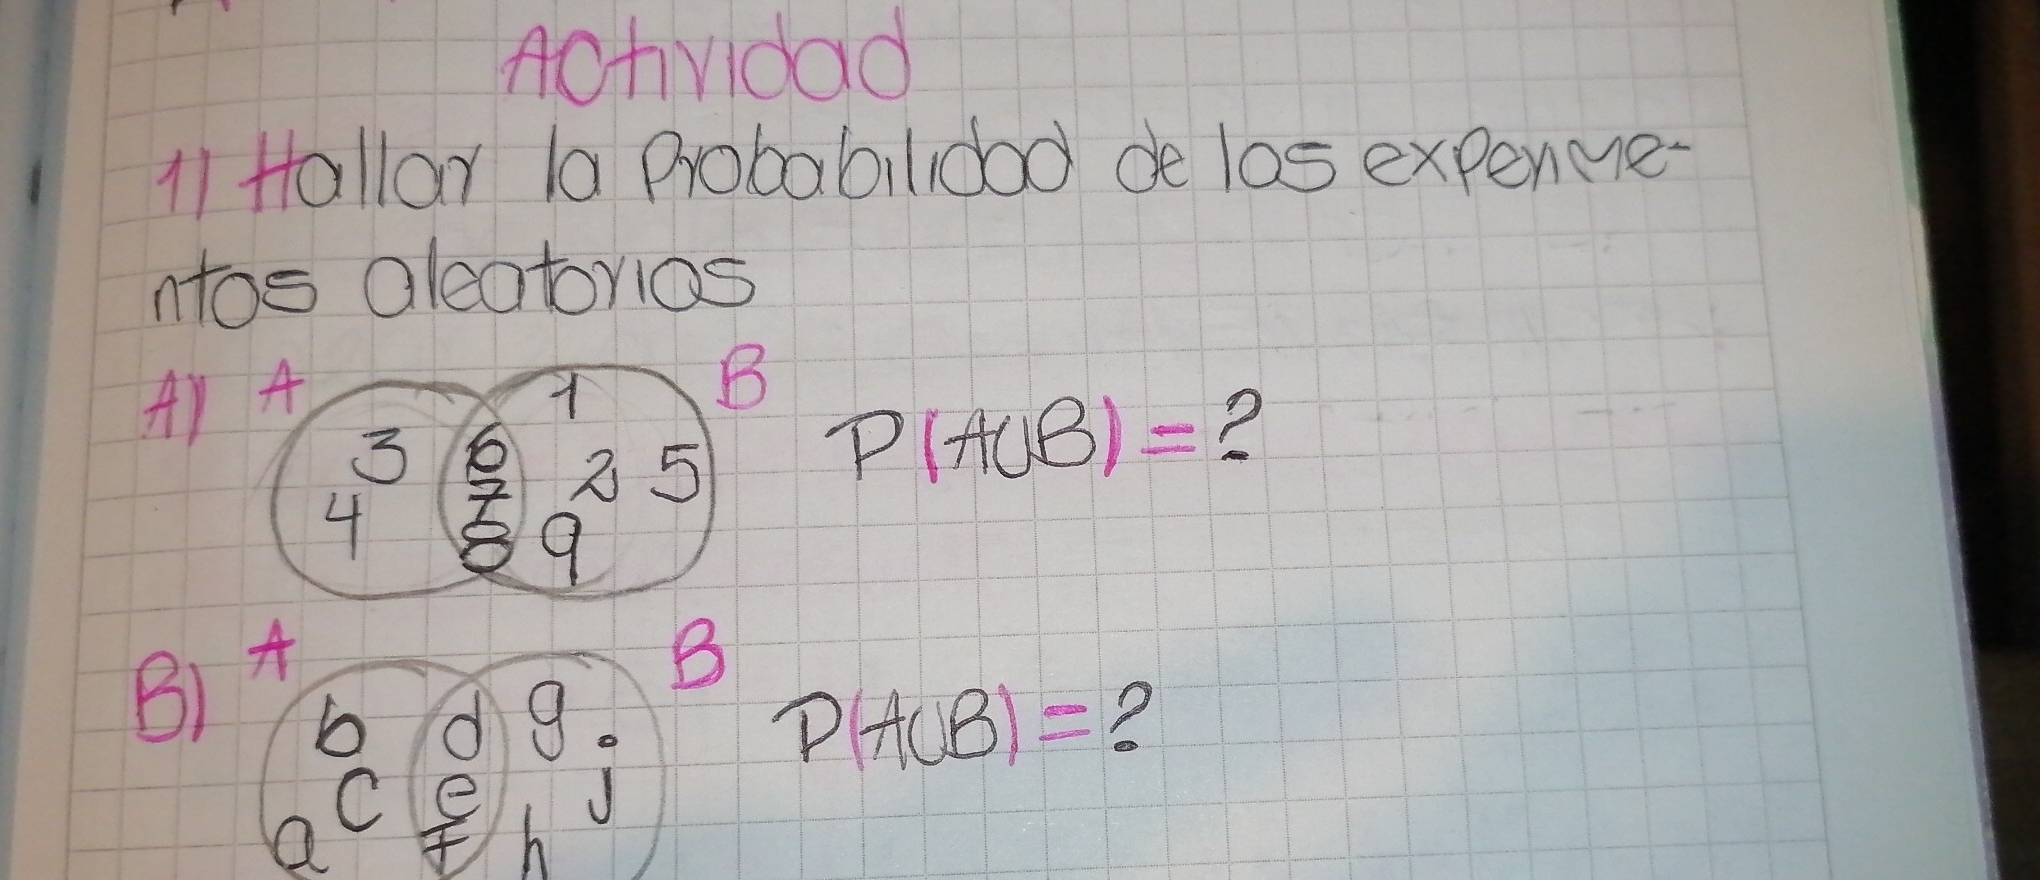 Actividad
1) Hallar la Probabilidad de los experime-
ntos aleatorios
A) A B
1
3 6 2 5 P(A∪B) = ?
4 7
8 9
B) A B
b d g j P(A∪B) = ?
c e
a f h